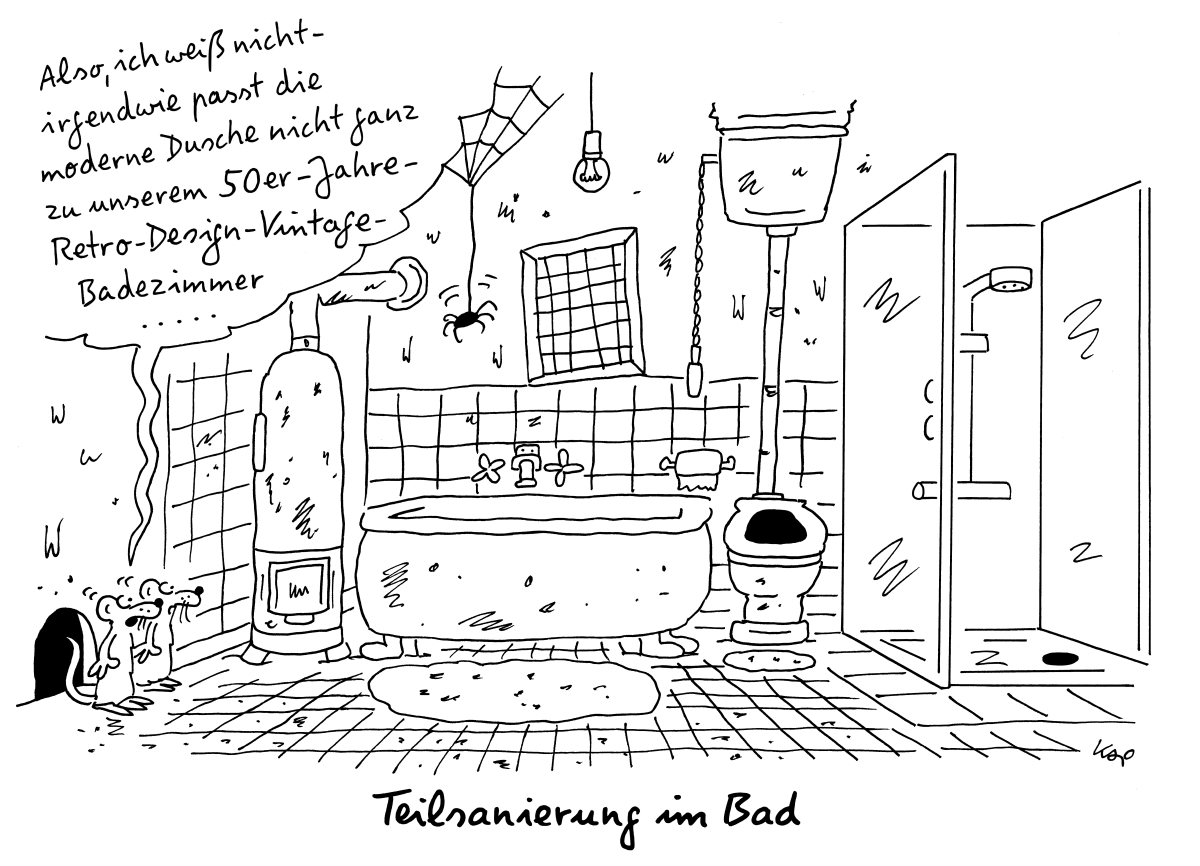 Also, ich weiß nicht-
irgendwie passt die
moderne Dusche nicht ganz
zu unserem 50er-Jahre-
Retro-Design-Vintage-
Badezimmer
.....
Kap
Teilsanierung im Bad